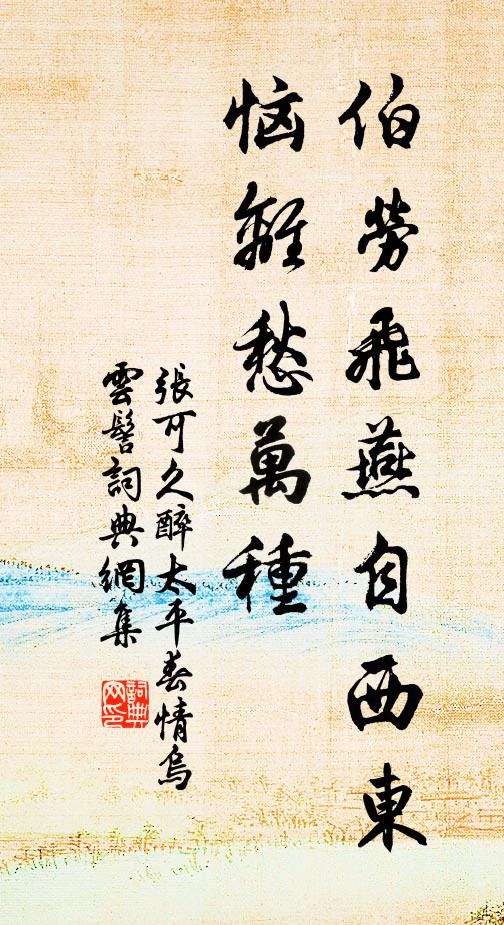 伯勞飛燕自西東
恼離愁萬種
張可久醉太平春情烏
雲髻詞典網集
詞典
网印